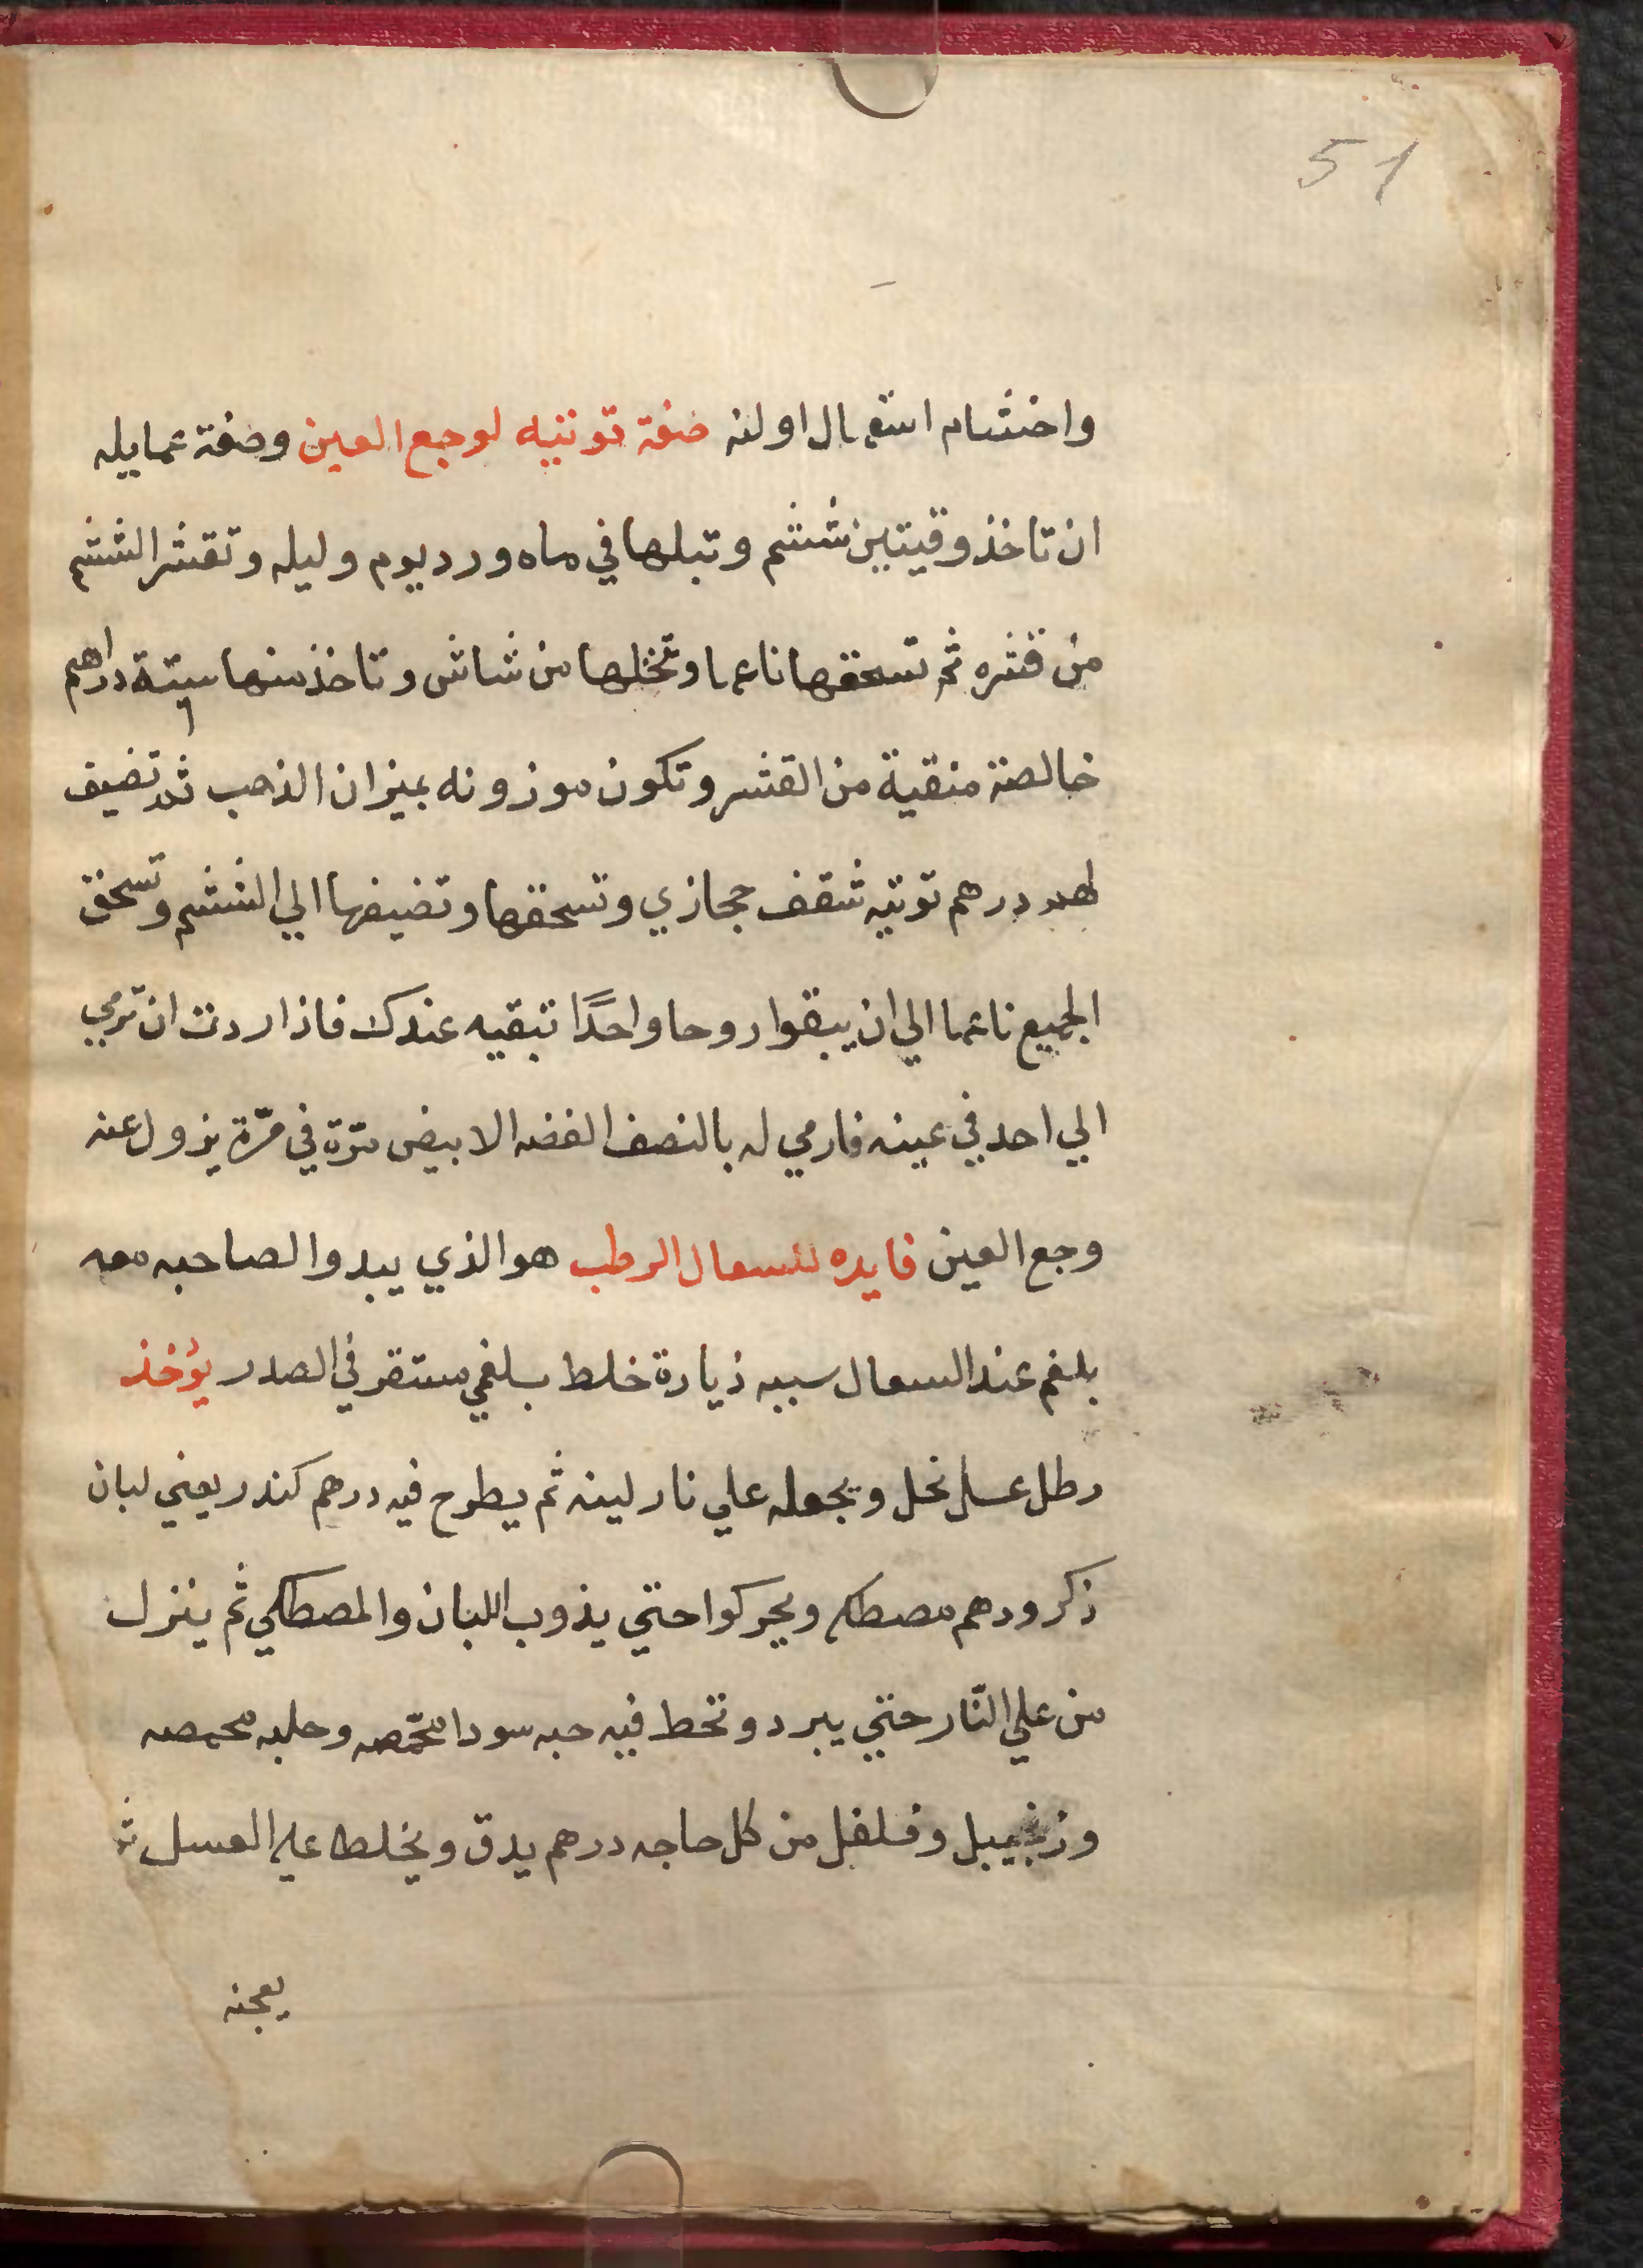 51
واختتام استعمال اولنه صفة توتيه لوجع العين وصفة عمايله
ان تاخذ وقيتين ششم وتبلها في ماه ورد يوم وليله وتقشر الششم
من قشره ثم تسحقها ناعما وتنخلها من شاش وتاخذ منها ستة دراهم
خالصة منقية من القشر وتكون موزونه بميزان الذهب ثم تضيف
لهم درهم توتيه شقف حجازي وتسحقها وتضيفها الي الششم وتسحق
الجميع ناعما الي ان يبقوا روحا واحدًا تبقيه عندك فاذا اردت ان ترمي
الي احد في عينه فارمي له بالنصف الفضه الابيض مرّة في مرّة يزول عنه
وجع العين فايده للسعال الرطب هو الذي يبدوا لصاحبه معه
بلغم عند السعال سببه زيادة خلط بلغمي مستقر في الصدر يؤخذ
رطل عسل نحل ويجعله علي نار لينه ثم يطرح فيه درهم كندر يعني لبان
ذكر ودهم مصطكي ويحركوا حتي يذوب اللبان والمصطكي ثم ينزل
من علي النّار حتي يبرد وتحط فيه حبه سودا محمّصه وحلبه محمصه
وزنجبيل وفلفل من كل حاجه درهم يدق ويخلط علي العسل ثم
يعجنه